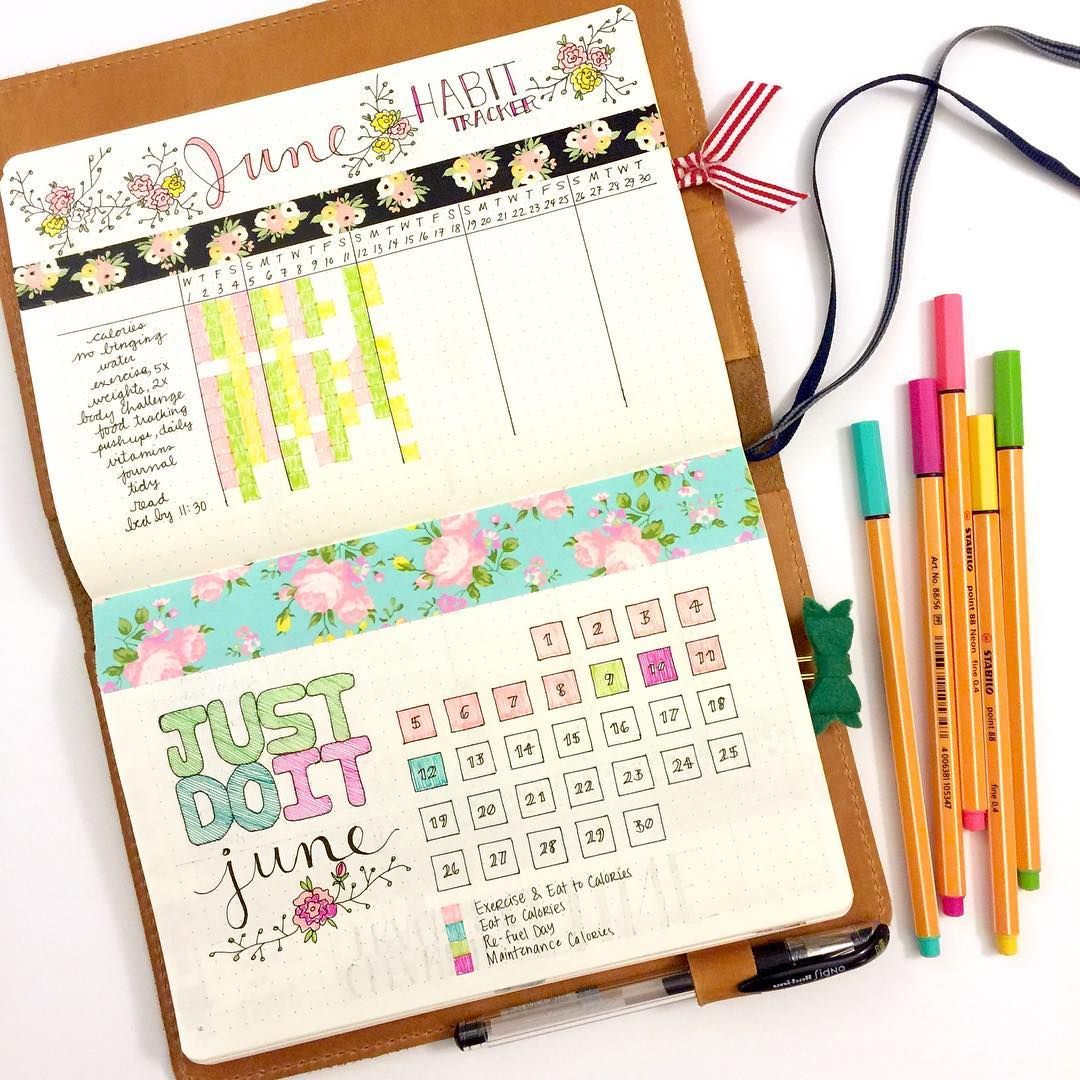 June HABIT
TRACKER
W T F S S M T W T F S S M T W T F S S M T W T F S S M T W T
1 2 3 4 5 6 7 8 9 10 11 12 13 14 15 16 17 18 19 20 21 22 23 24 25 26 27 28 29 30
calories
no binging
water
exercise, 5x
weights, 2x
body challenge
food tracking
pushups, daily
vitamins
journal
tidy
read
bed by 11:30
JUST
DO IT
june
1 2 3 4
5 6 7 8 9 10 11
12 13 14 15 16 17 18
19 20 21 22 23 24 25
26 27 28 29 30
Exercise & Eat to Calories
Eat to Calories
Re-fuel Day
Maintenance Calories
uni-ball SIGNO
Art. No. 88/56
STABILO point 88 Neon fine 0.4
4 006381 105347
STABILO point 88 fine 0.4